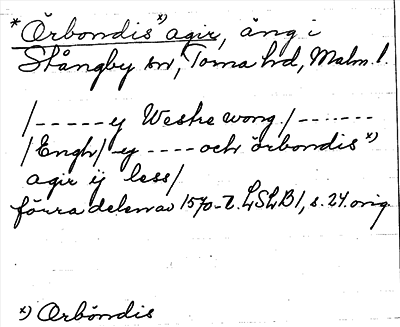 * Örbondis x) agir, äng i
Stångby sn, Torna hd, Malm. l.
/------ ij Westre wong /-------
/Engh/ - ij ---- och örbondis x)
agir ij less/
förra delen av 1570-t. LSLB 1, s. 24. orig.
x) Orböndis